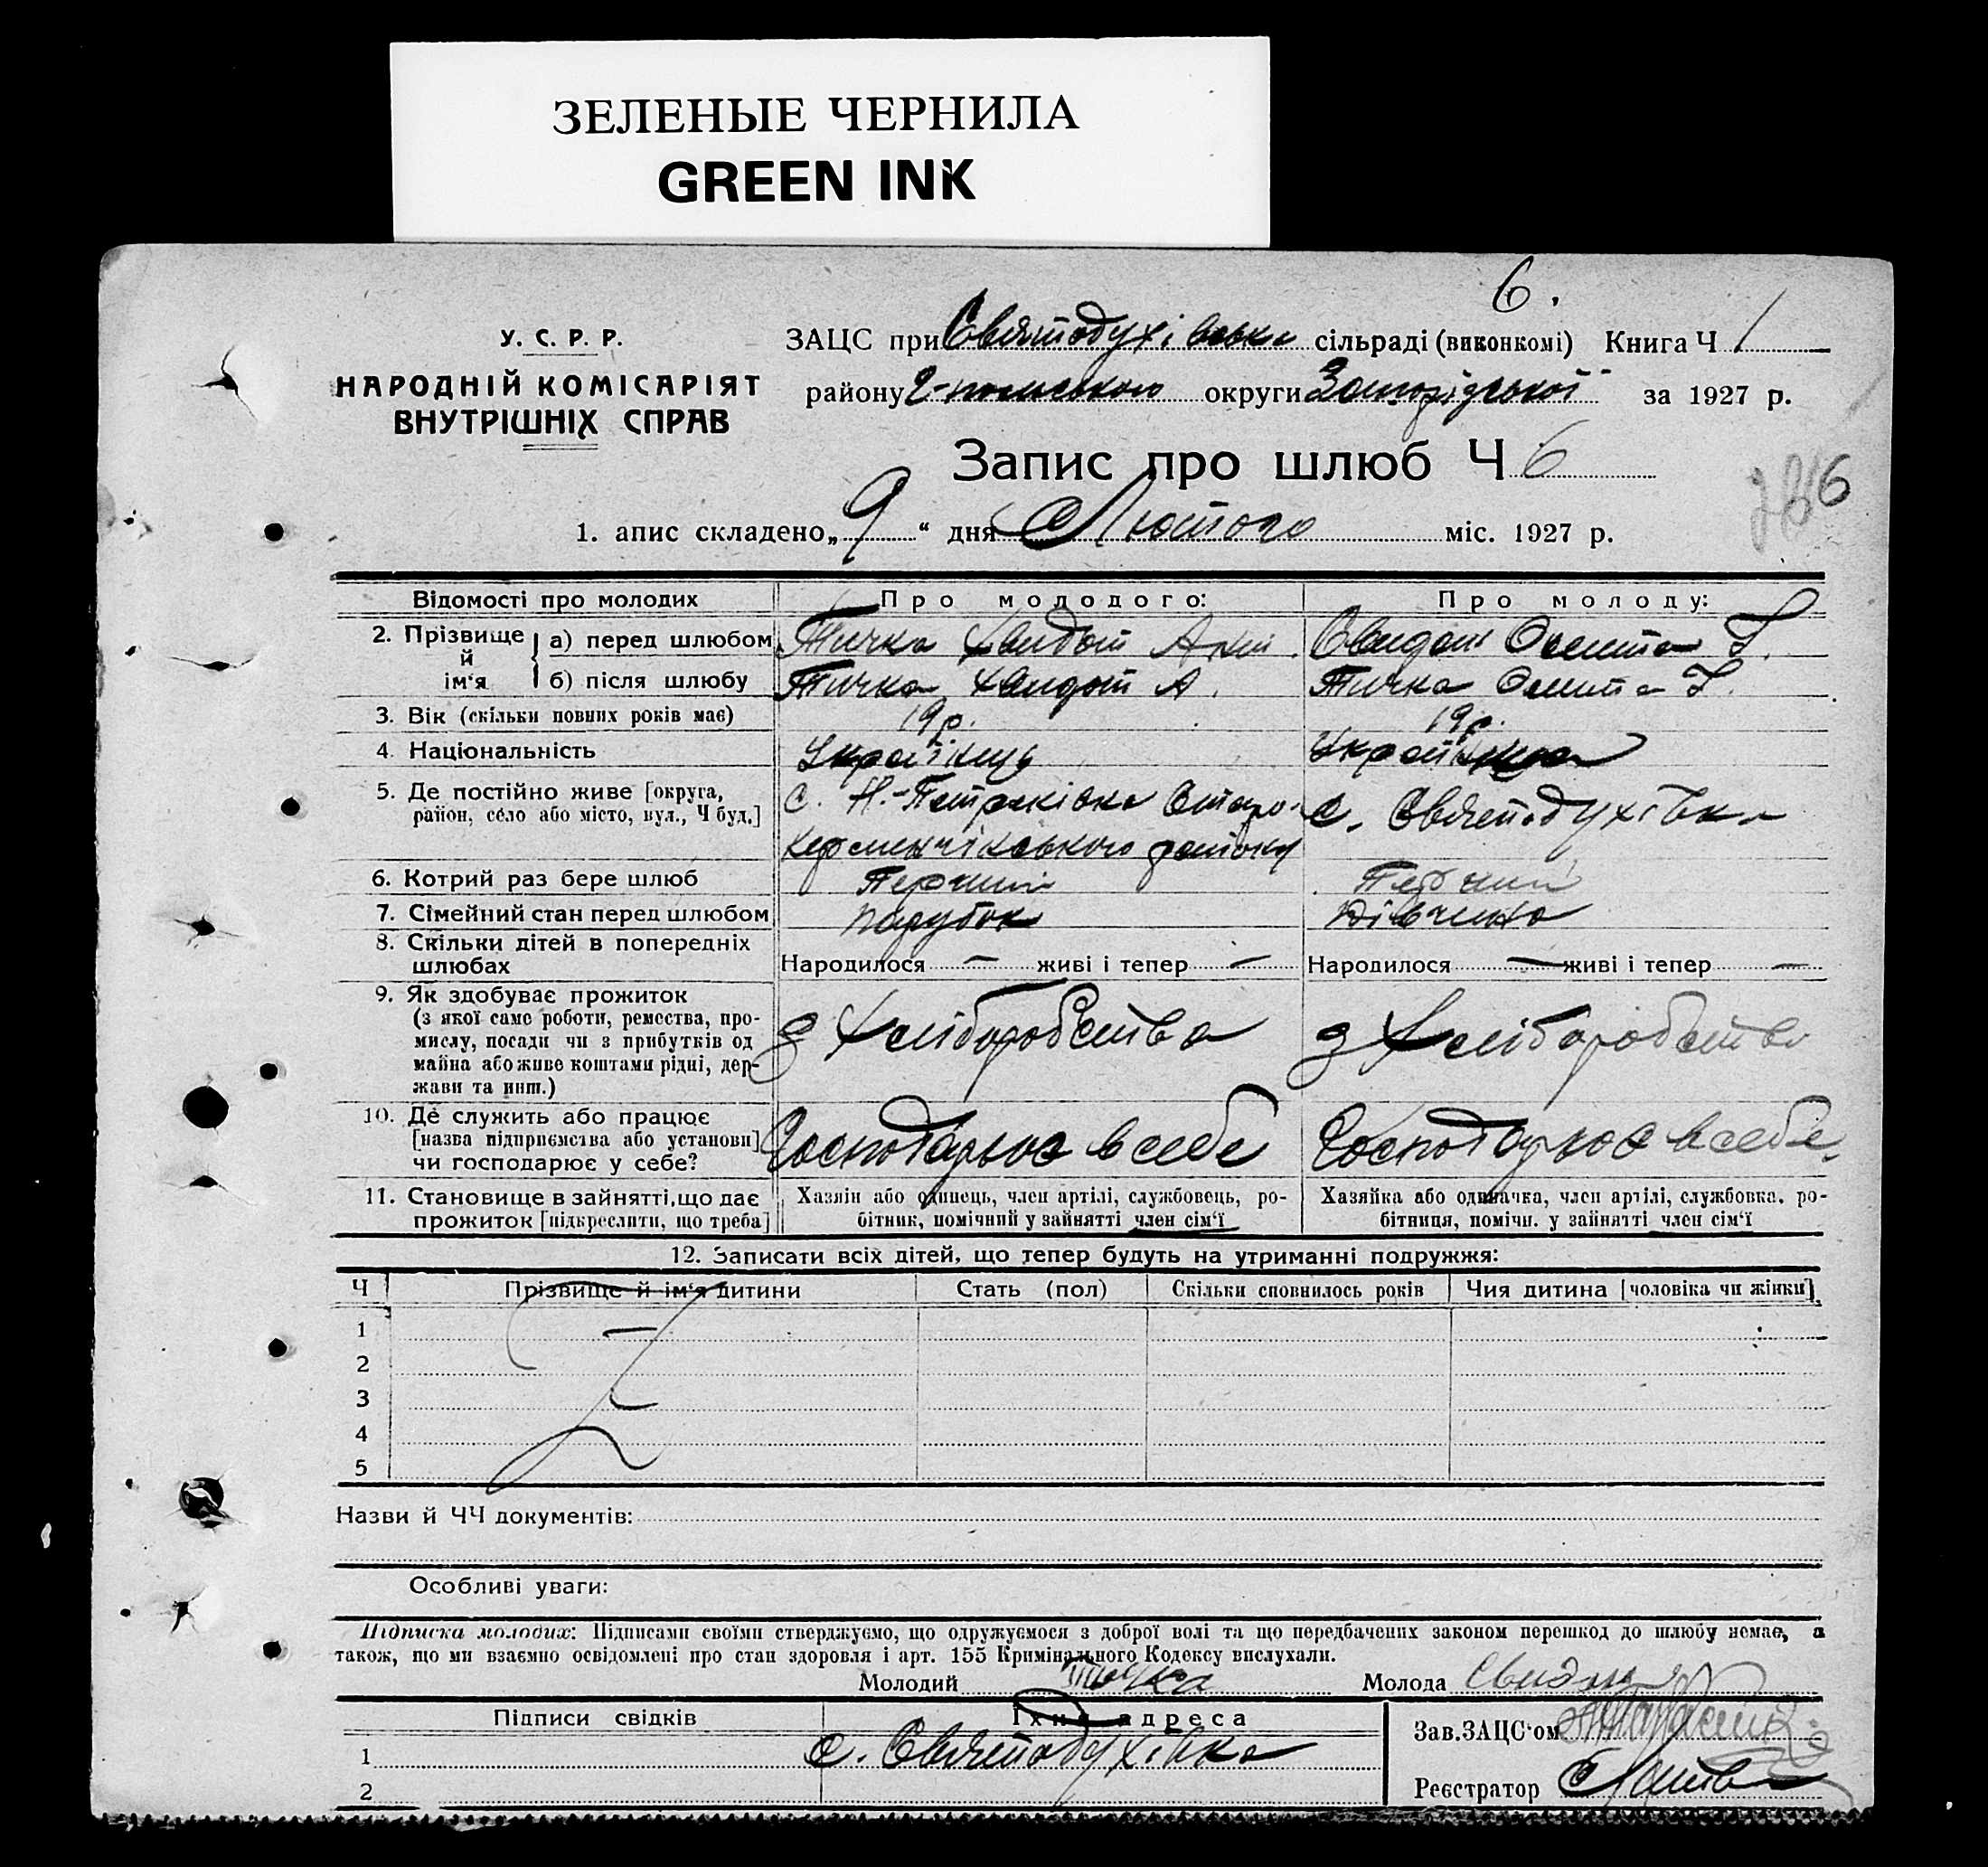 ЗЕЛЕНЫЕ ЧЕРНИЛА
GREEN INK
6.
У. С. Р. Р.
НАРОДНІЙ КОМІСАРІЯТ
ВНУТРІШНІХ СПРАВ
ЗАЦС при Святодухівська сільраді (виконкомі) Книга Ч 1
району округи Запорізької за 1927 р.
Запис про шлюб Ч 6
6
1. апис складено „9“ дня Лютого міс. 1927 р.
Відомості про молодих Про молодого: Про молоду:
2. Прізвище й ім'я а) перед шлюбом Тичка
б) після шлюбу Тичка А. Тичка
3. Вік (скільки повних років має) 19 р. 19 р.
4. Національність Українець Українка
5. Де постійно живе [округа, район, село або місто, вул., Ч буд.] с. Н.-Петраківка Старо-Керменчікського району с. Святодухівка
6. Котрий раз бере шлюб Перший Перший
7. Сімейний стан перед шлюбом парубок дівчина
8. Скільки дітей в попередніх шлюбах Народилося — живі і тепер — Народилося — живі і тепер —
9. Як здобуває прожиток
(з якої саме роботи, ремества, про-
мислу, посади чи з прибутків од
майна або живе коштами рідні, дер-
жави та инш.)
з Хліборобства з Хліборобства
10. Де служить або працює
[назва підприємства або установи]
чи господарює у себе?
Господарює в себе Господарює в себе.
11. Становище в зайнятті, що дає
прожиток [підкреслити, що треба]
Хазяїн або одинець, член артілі, службовець, ро-
бітник, помічний у зайнятті член сім'ї
Хазяйка або одиначка, член артілі, службовка, ро-
бітниця, помічн. у зайнятті член сім'ї
12. Записати всіх дітей, що тепер будуть на утриманні подружжя:
Ч Прізвище й ім'я дитини Стать (пол) Скільки сповнилось років Чия дитина [чоловіка чи жінки]
1
2
3
4
5
Назви й ЧЧ документів:
Особливі уваги:
Підписка молодих: Підписами своїми стверджуємо, що одружуємося з доброї волі та що передбачених законом перешкод до шлюбу немає, а
також, що ми взаємно освідомлені про стан здоровля і арт. 155 Кримінального Кодексу вислухали.
Молодий Тичка Молода
Підписи свідків Їхня адреса
1 с. Святодухівка
2
Зав. ЗАЦС'ом
Реєстратор